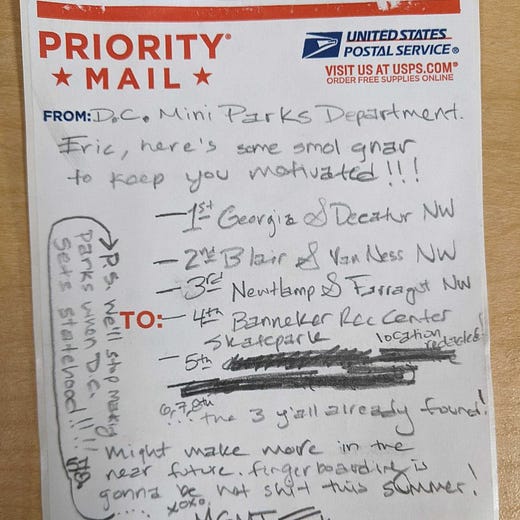 PRIORITY®
★ MAIL ★
UNITED STATES
POSTAL SERVICE®
VISIT US AT USPS.COM®
ORDER FREE SUPPLIES ONLINE
FROM: D.C. Mini Parks Department.
Eric, here's some smol gnar
to keep you motivated!!!
— 1st Georgia & Decatur NW
— 2nd Blair & Van Ness NW
— 3rd Newtlamp & Farragut NW
TO: — 4th Banneker Rec Center
Skatepark
— 5th location redacted!
6,7,8th
... the 3 y'all already found!
Might make more in the
near future. fingerboarding is
gonna be hot shit this summer!
.... xoxo,
MGMT
P.S. We'll stop making
parks when D.C.
gets statehood!!!!